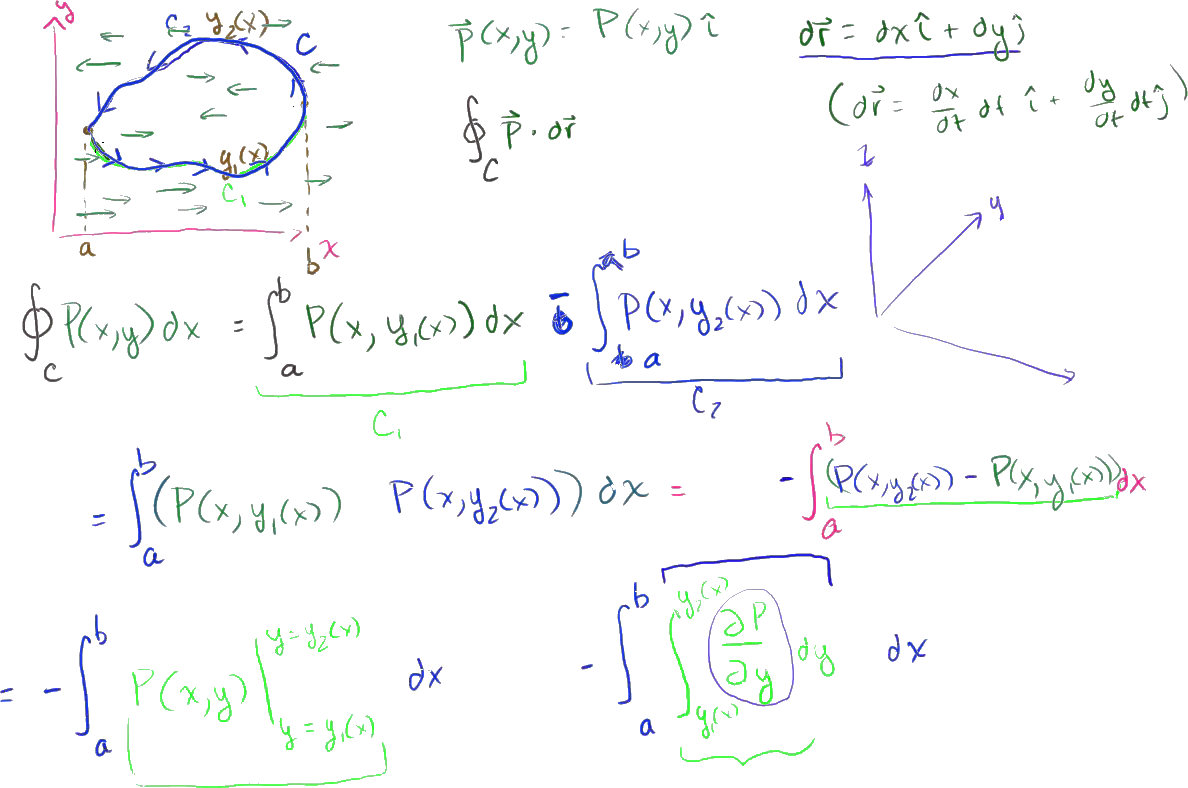 y
C₂ y₂(x)
C
y₁(x)
C₁
a
b
x
P⃗(x,y) = P(x,y) î
dr⃗ = dx î + dy ĵ
∮_C P⃗ · dr⃗
(dr⃗ = dx/dt dt î + dy/dt dt ĵ)
z
y
∮_C P(x,y) dx = ∫_a^b P(x, y₁(x)) dx - ∫_a^b P(x, y₂(x)) dx
C₁
C₂
= ∫_a^b (P(x, y₁(x)) P(x, y₂(x))) dx = - ∫_a^b (P(x, y₂(x)) - P(x, y₁(x))) dx
= - ∫_a^b P(x,y) |_{y = y₁(x)}^{y = y₂(x)} dx - ∫_a^b ∫_{y₁(x)}^{y₂(x)} ∂P/∂y dy dx